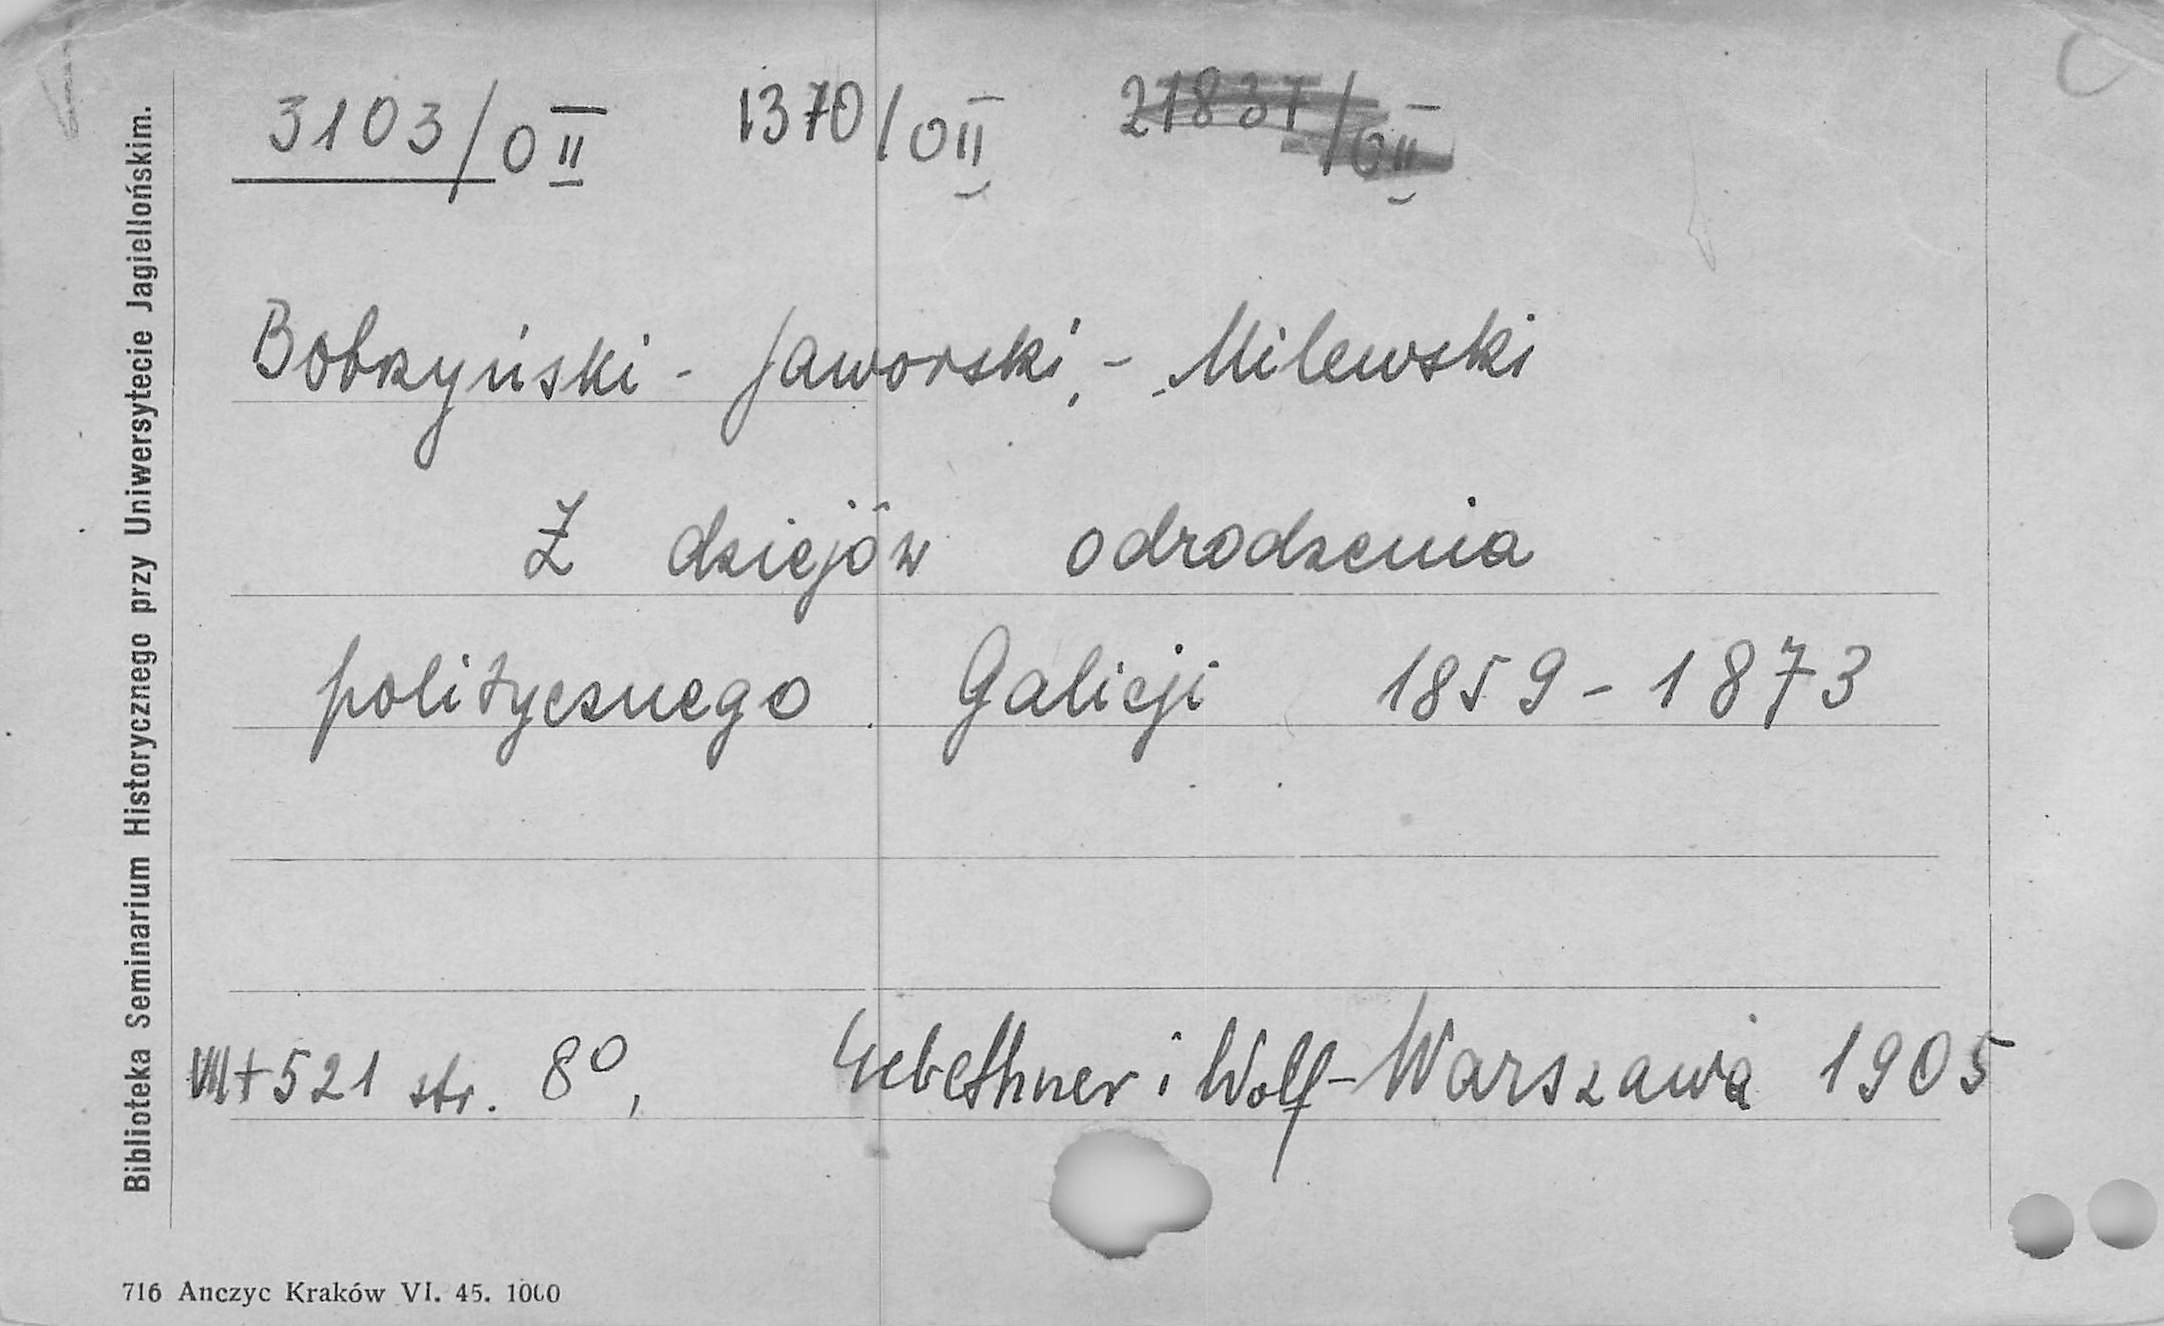 3103/OII 1370/OII 21837/OII
Bobrzyński - Jaworski, - Milewski
Z dziejów odrodzenia
politycznego Galicji 1859-1873
VIII+521 str. 8º, Gebethner i Wolf - Warszawa 1905
Biblioteka Seminarium Historycznego przy Uniwersytecie Jagiellońskim.
716 Anczyc Kraków VI. 45. 1000